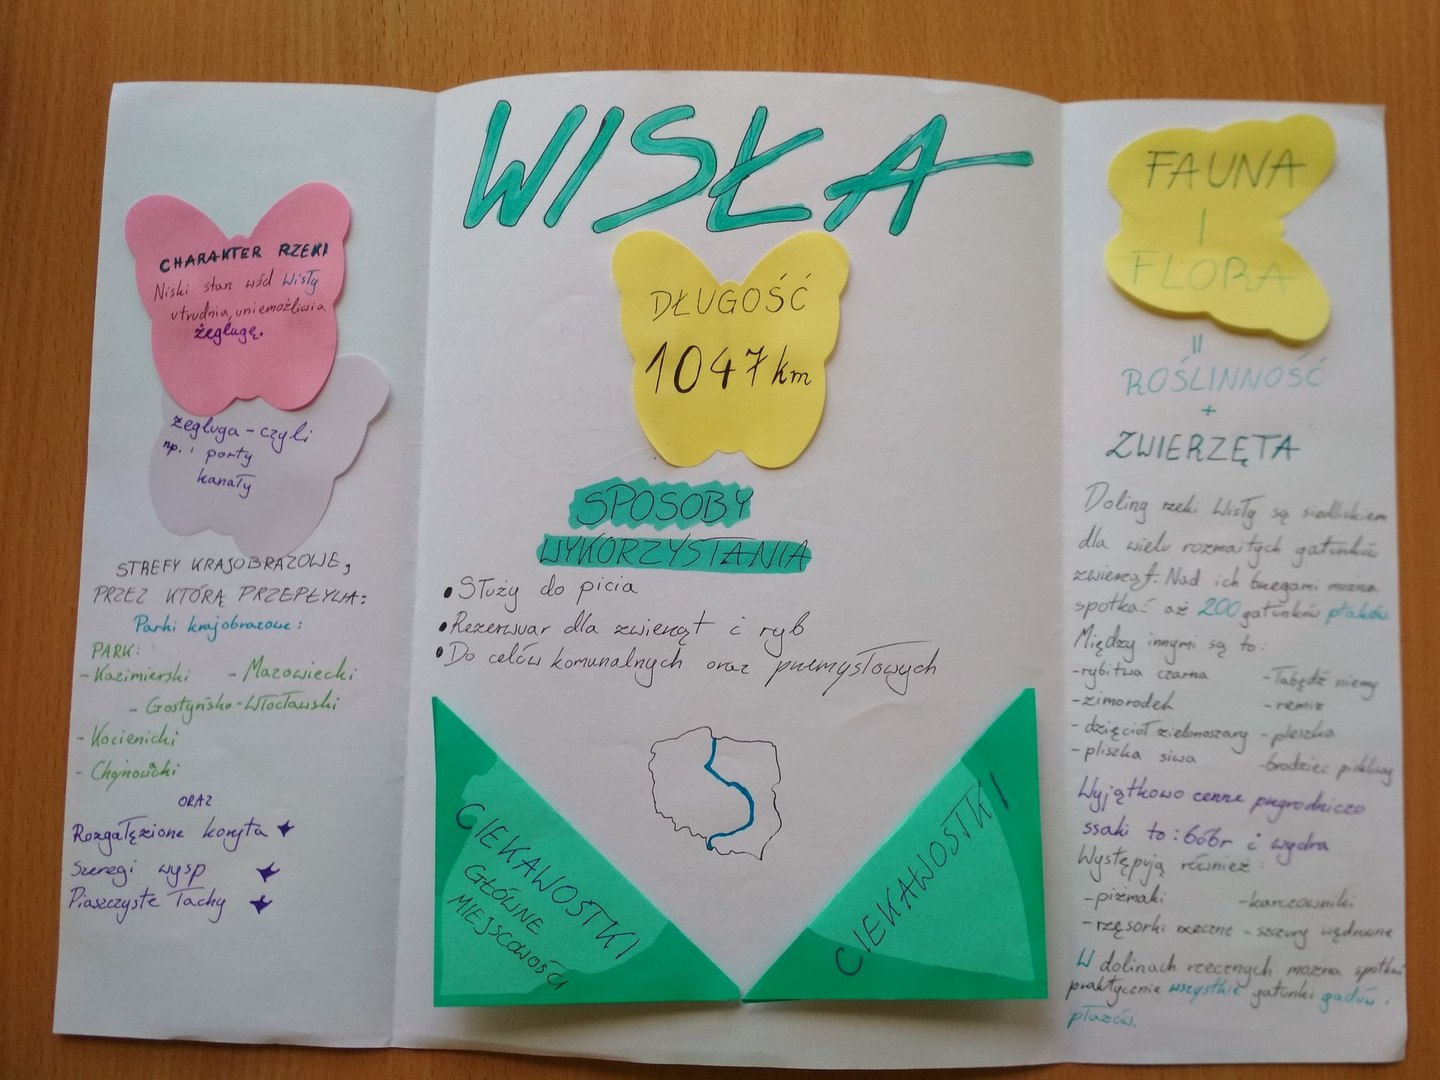 WISŁA
CHARAKTER RZEKI
Niski stan wód Wisły
utrudnia, uniemożliwia
żeglugę.
żegluga - czyli
np.: porty
kanały
STREFY KRAJOBRAZOWE,
PRZEZ KTÓRĄ PRZEPŁYWA:
Parki krajobrazowe:
PARK:
- Kazimierski - Mazowiecki
- Gostyńsko-Włocławski
- Kocienicki
- Chojnowski
ORAZ
Rozgałęzione koryta
Szeregi wysp
Piaszczyste łachy
DŁUGOŚĆ
1047 km
SPOSOBY
WYKORZYSTANIA
• Służy do picia
• Rezerwuar dla zwierząt i ryb
• Do celów komunalnych oraz przemysłowych
CIEKAWOSTKI
GŁÓWNE
MIEJSCOWOŚCI
CIEKAWOSTKI
FAUNA
I
FLORA
=
ROŚLINNOŚĆ
+
ZWIERZĘTA
Doliny rzeki Wisły są siedliskiem
dla wielu rozmaitych gatunków
zwierząt. Nad ich brzegami można
spotkać aż 200 gatunków ptaków.
Między innymi są to:
- rybitwa czarna - łabędź niemy
- zimorodek - remiz
- dzięcioł zielonoszary - pleszka
- pliszka siwa - brodziec piskliwy
Wyjątkowo cenne przyrodniczo
ssaki to: bóbr i wydra
Występują również:
- piżmaki - karczowniki
- rzęsorki rzeczne - szczury wędrowne
W dolinach rzecznych można spotkać
praktycznie wszystkie gatunki gadów i
płazów.